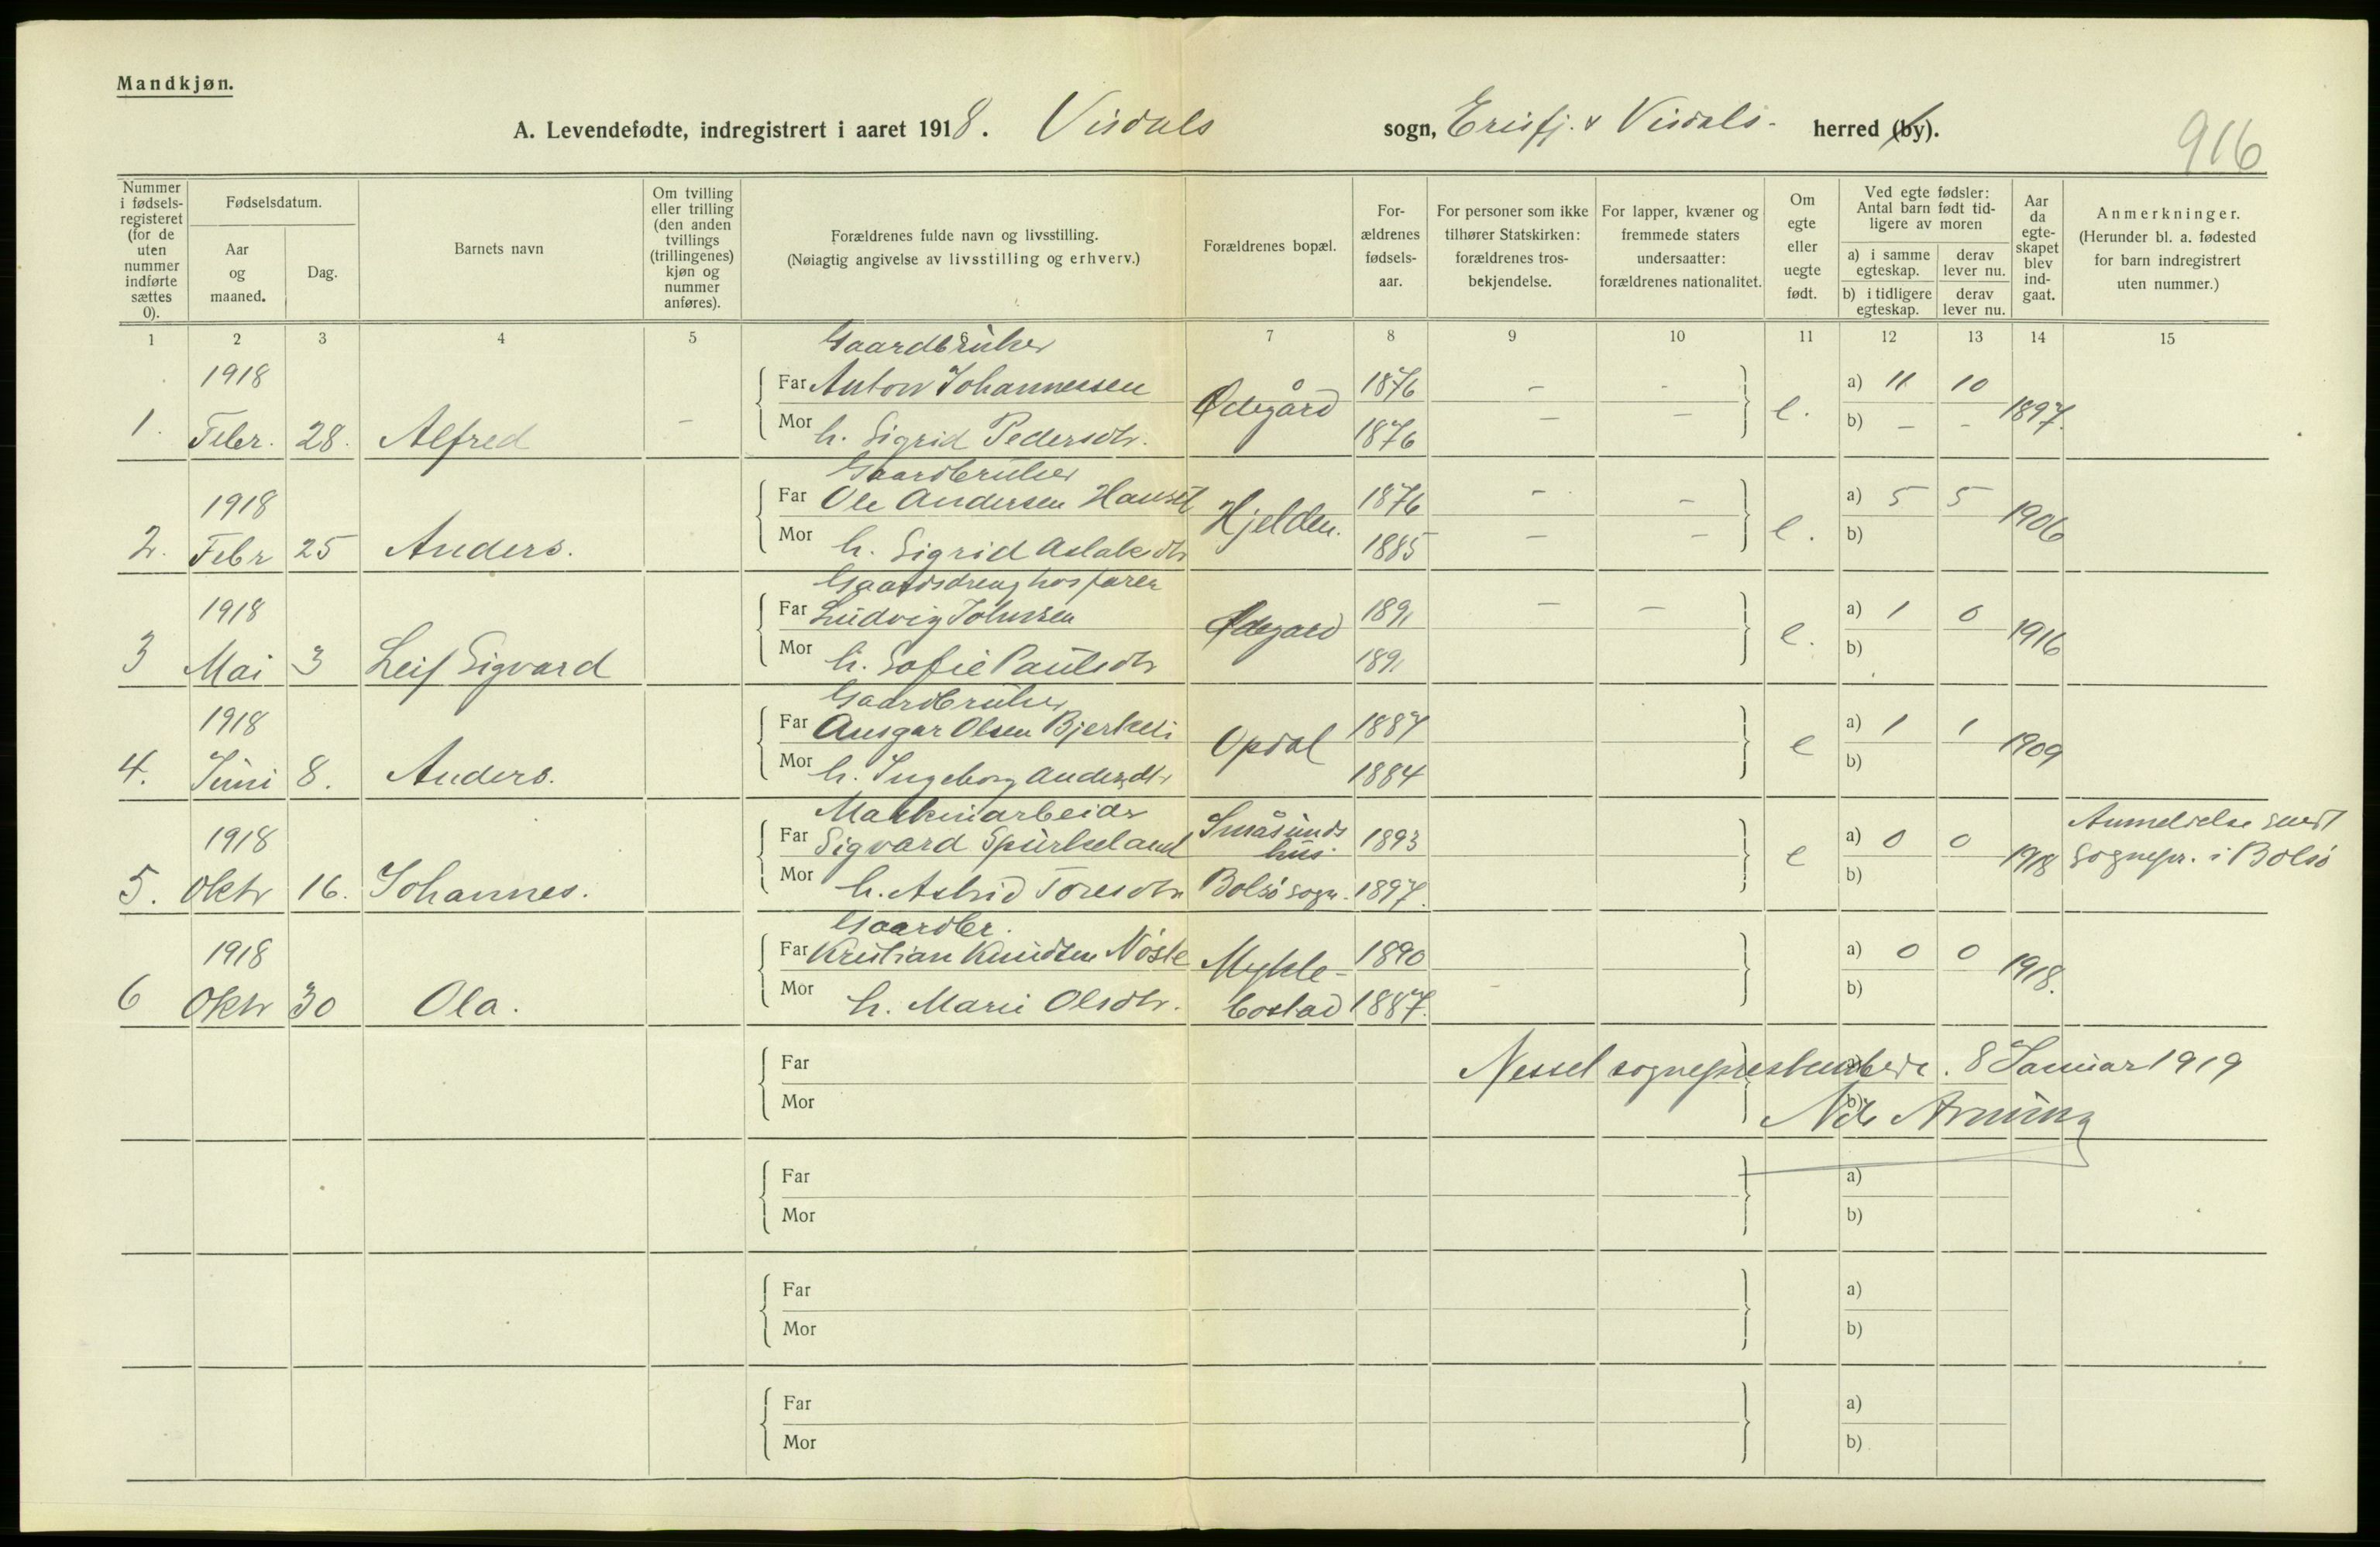 Mandkjøn.
A. Levendefødte, indregistrert i aaret 1918. Visdals sogn, Erisfj. & Visdals- herred (by).
916
Nummer i fødselsregisteret (for de uten nummer indførte sættes 0).
Fødselsdatum.
Aar og maaned.
Dag.
Barnets navn
Om tvilling eller trilling (den anden tvillings (trillingenes) kjøn og nummer anføres).
Forældrenes fulde navn og livsstilling.
(Nøiagtig angivelse av livsstilling og erhverv.)
Forældrenes bopæl.
Forældrenes fødselsaar.
For personer som ikke tilhører Statskirken: forældrenes trosbekjendelse.
For lapper, kvæner og fremmede staters undersaatter: forældrenes nationalitet.
Om egte eller uegte født.
Ved egte fødsler: Antal barn født tidligere av moren
a) i samme egteskap.
derav lever nu.
b) i tidligere egteskap.
derav lever nu.
Aar da egteskapet blev indgaat.
Anmerkninger.
(Herunder bl. a. fødested for barn indregistrert uten nummer.)
1 2 3 4 5 6 7 8 9 10 11 12 13 14 15
Gaardbruker
1918 Far Anton Johannessen Ødegård 1876 – - a) 11 10
1. Febr. 28. Alfred – Mor h. Sigrid Pedersdtr. 1876 – – e. b) – – 1897.
Gaardbruker
1918 Far Ole Andersen Hauset Hjelden. 1876 – – a) 5 5 1906
2. Febr 25 Anders. Mor h. Sigrid Aslaksdtr 1885 – – e. b)
Gaardsdreng hos faren
1918 Far Ludvig Johnsen Ødegaard 1891 – – a) 1 0 1916
3 Mai 3 Leif Sigvard Mor h. Sofie Paulsdtr 1891 e. b)
Gaardbruker
1918 Far Ansgar Olsen Bjerkeli Opdal 1887 a) 1 1 1909
4. Juni 8. Anders. Mor h. Ingeborg Andersdtr 1884 e b)
Maskinarbeider Småsunds Anmeldelse sendt
1918 Far Sigvard Spurkeland hus. 1893 a) 0 0 1918 sognepr. i Bolsö
5. Oktr 16. Johannes. Mor h. Astrid Toresdtr Bolsö sogn. 1897. e b)
Gaardbr.
1918 Far Kristian Knudsen Nöste Mykle- 1890 a) 0 0 1918.
6 Oktr 30 Ola. Mor h. Marie Olsdtr. bostad 1887. b)
Far Nesset sogneprestembede. 8 Januar 1919
Mor b)
Far a)
Mor b)
Far a)
Mor b)
Far a)
Mor b)